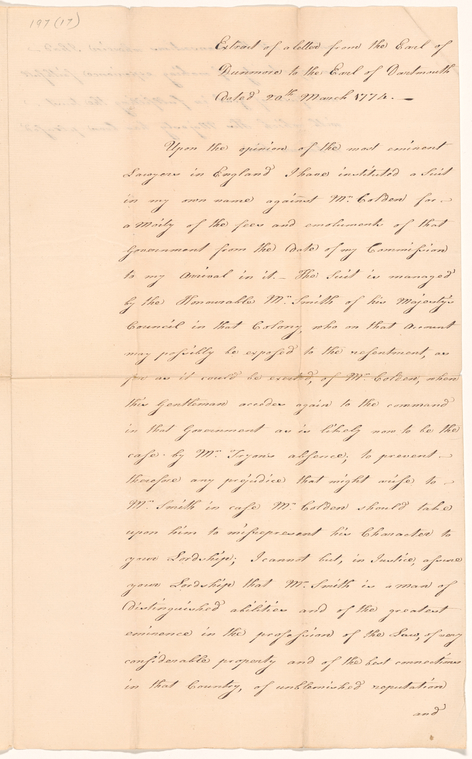 197 (17)
Extract of a letter from the Earl of
Dunmore to the Earl of Dartmouth
Dated 20th. March 1774. —
Upon the opinion of the most eminent
Lawyers in England I have instituted a Suit
in my own name against Mr. Colden for —
a Moity of the fees and emoluments of that
Government from the Date of my Commission
to my Arrival in it. — The Suit is managed
by the Honourable Mr. Smith of his Majesty's
Council in that Colony, who on that Account
may possibly be exposed to the resentment, as
far as it could be exerted, of Mr. Colden, when
this Gentleman accedes again to the command
in that Government as is likely now to be the
case by Mr. Tryon's absence; to prevent —
therefore any prejudice that might arise to —
Mr. Smith in case Mr. Colden should take
upon him to missrepresent his Character to
your Lordship; I cannot but, in Justice, assure
your Lordship that Mr. Smith is a man of
distinguished abilities and of the greatest
eminence in the profession of the Law, of very
considerable property and of the best connections
in that Country, of unblemished reputation
and